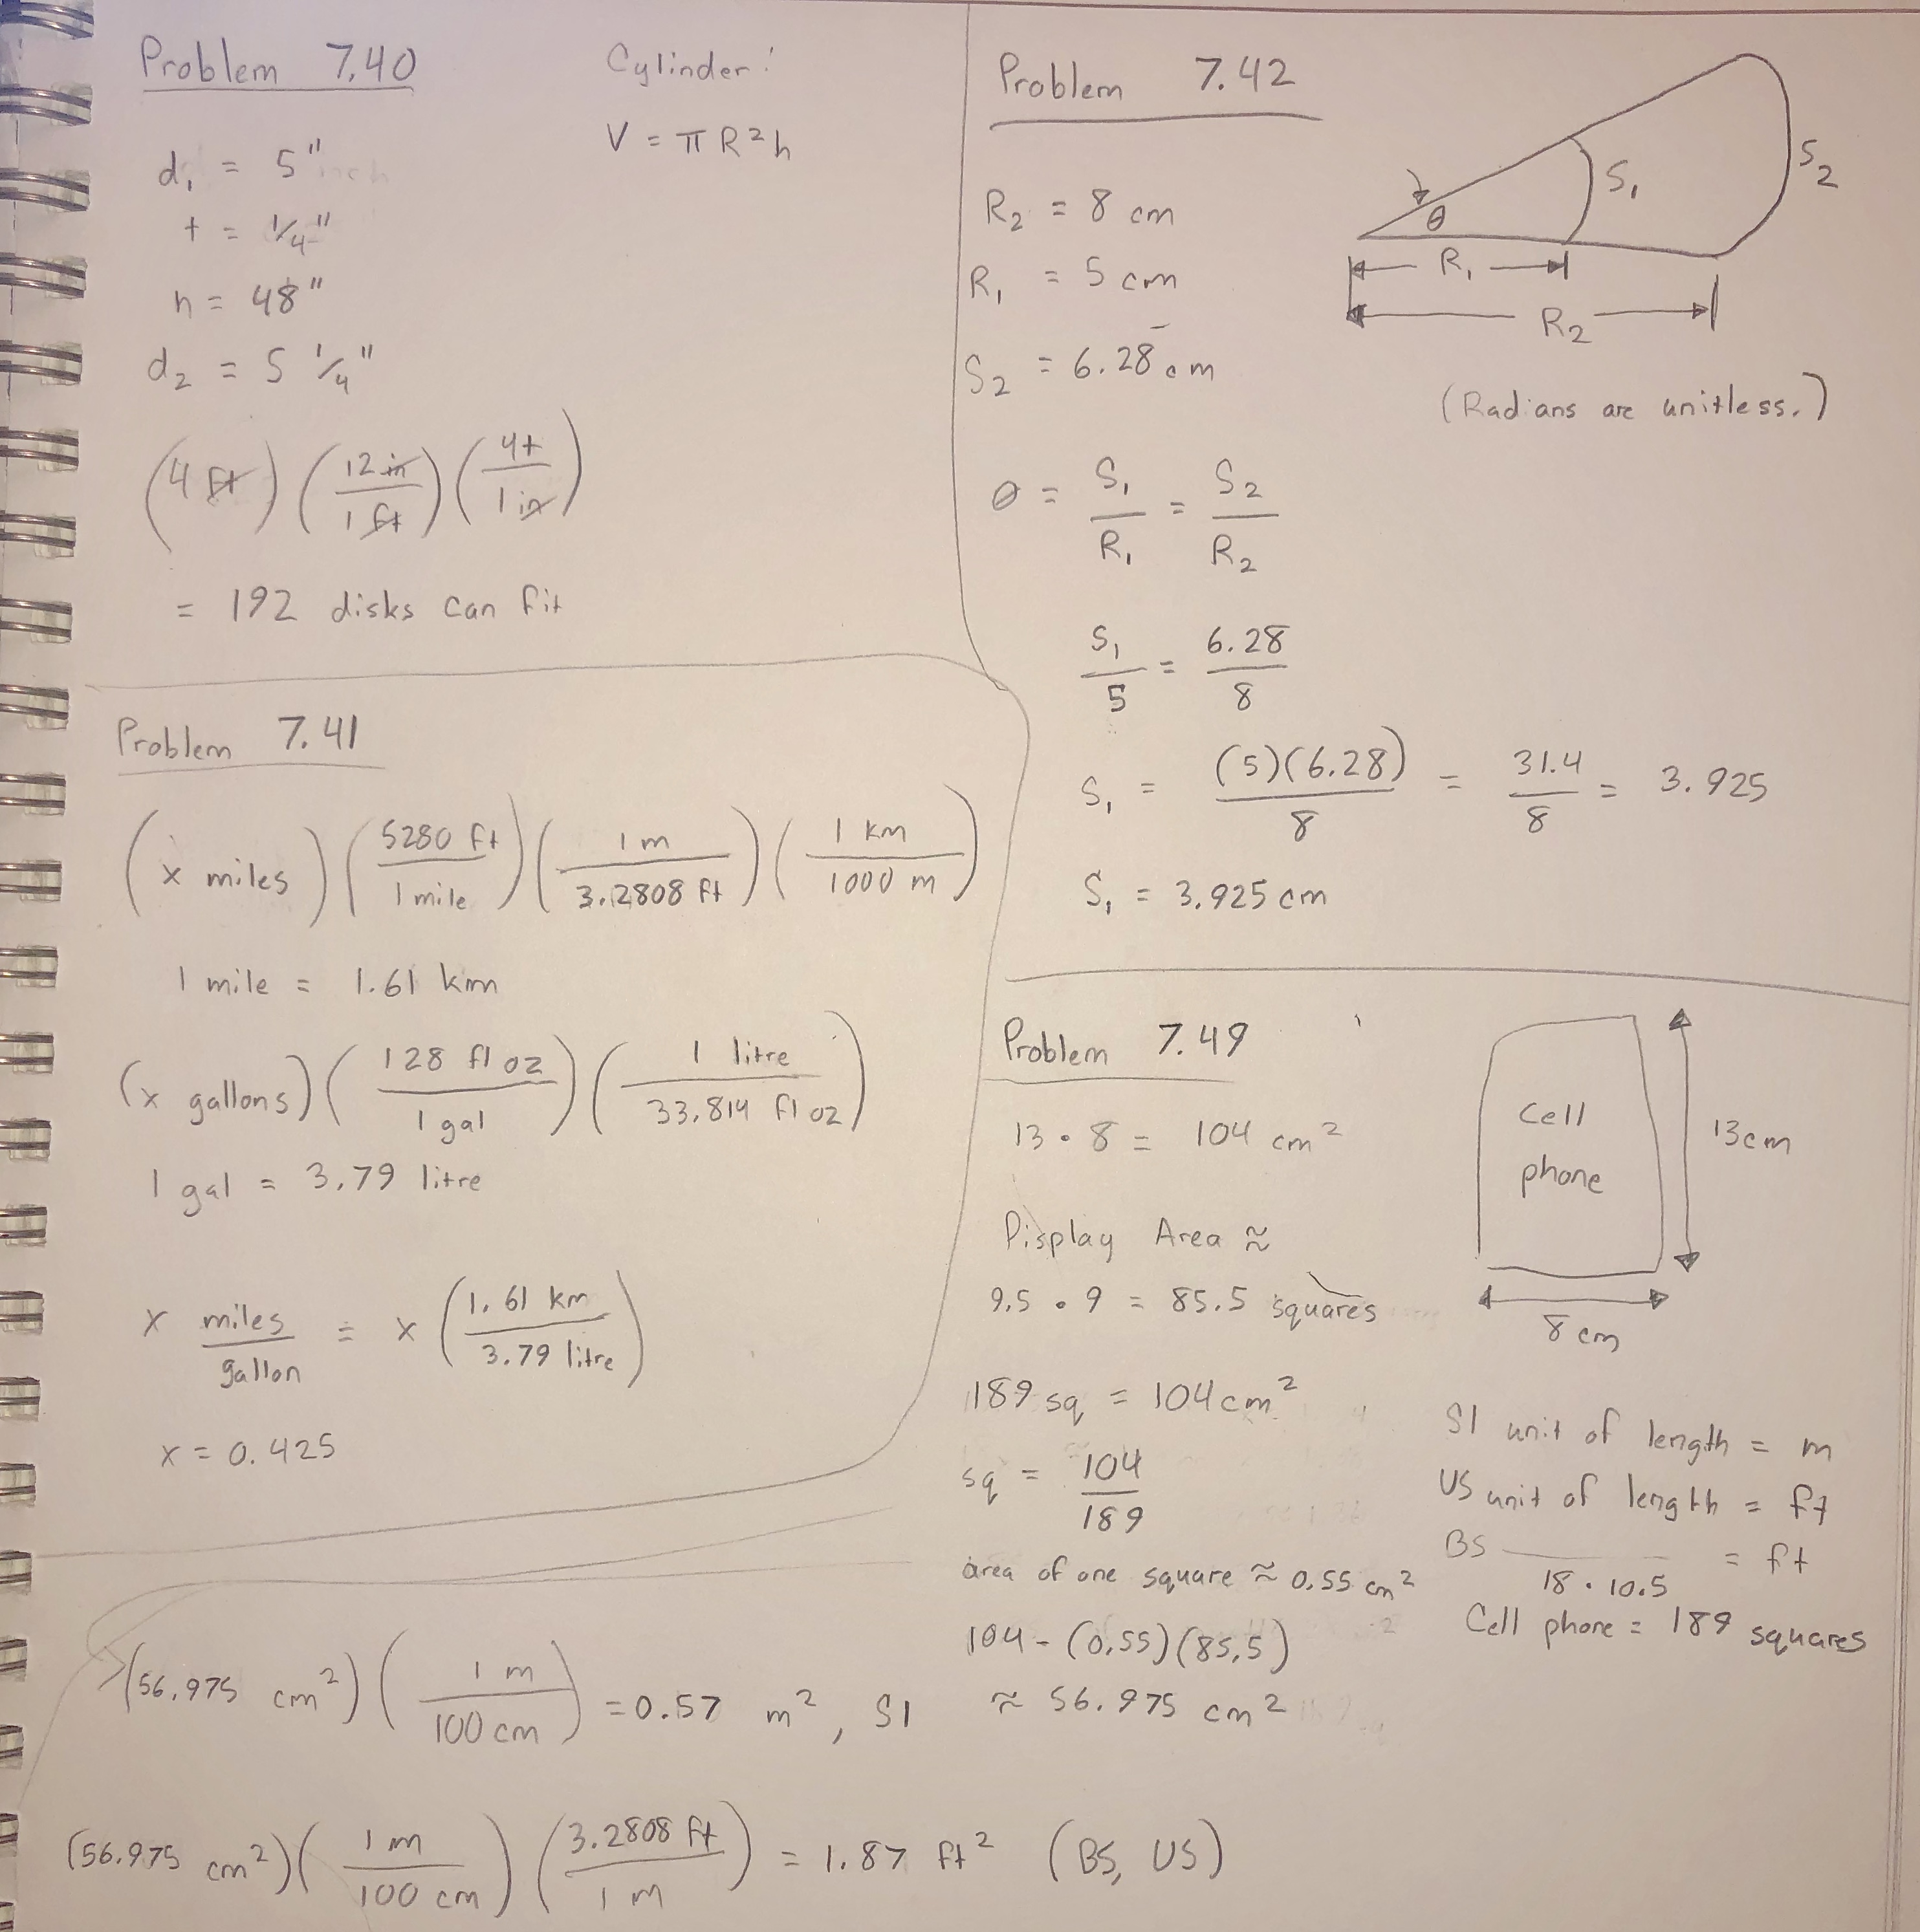 Problem 7.40
Cylinder:
V = π R² h
d₁ = 5"
t = 1/4"
h = 48"
d₂ = 5 1/4"
(4 ft) (12 in / 1 ft) (4t / 1 in)
= 192 disks can fit
Problem 7.41
(x miles) (5280 ft / 1 mile) (1 m / 3.2808 ft) (1 km / 1000 m)
1 mile = 1.61 km
(x gallons) (128 fl oz / 1 gal) (1 litre / 33.814 fl oz)
1 gal = 3.79 litre
x miles / gallon = x (1.61 km / 3.79 litre)
x = 0.425
Problem 7.42
R₂ = 8 cm
R₁ = 5 cm
S₂ = 6.28 cm
θ
S₁
S₂
R₁
R₂
(Radians are unitless.)
θ = S₁ / R₁ = S₂ / R₂
S₁ / 5 = 6.28 / 8
S₁ = (5)(6.28) / 8 = 31.4 / 8 = 3.925
S₁ = 3.925 cm
Problem 7.49
13 · 8 = 104 cm²
Cell
phone
13cm
8 cm
Display Area ≈
9.5 · 9 = 85.5 squares
189 sq = 104 cm²
sq = 104 / 189
area of one square ≈ 0.55 cm²
104 - (0.55)(85.5)
≈ 56.975 cm²
SI unit of length = m
US unit of length = ft
BS — = ft
18 · 10.5
Cell phone = 189 squares
(56.975 cm²) (1 m / 100 cm) = 0.57 m², SI
(56.975 cm²) (1 m / 100 cm) (3.2808 ft / 1 m) = 1.87 ft² (BS, US)